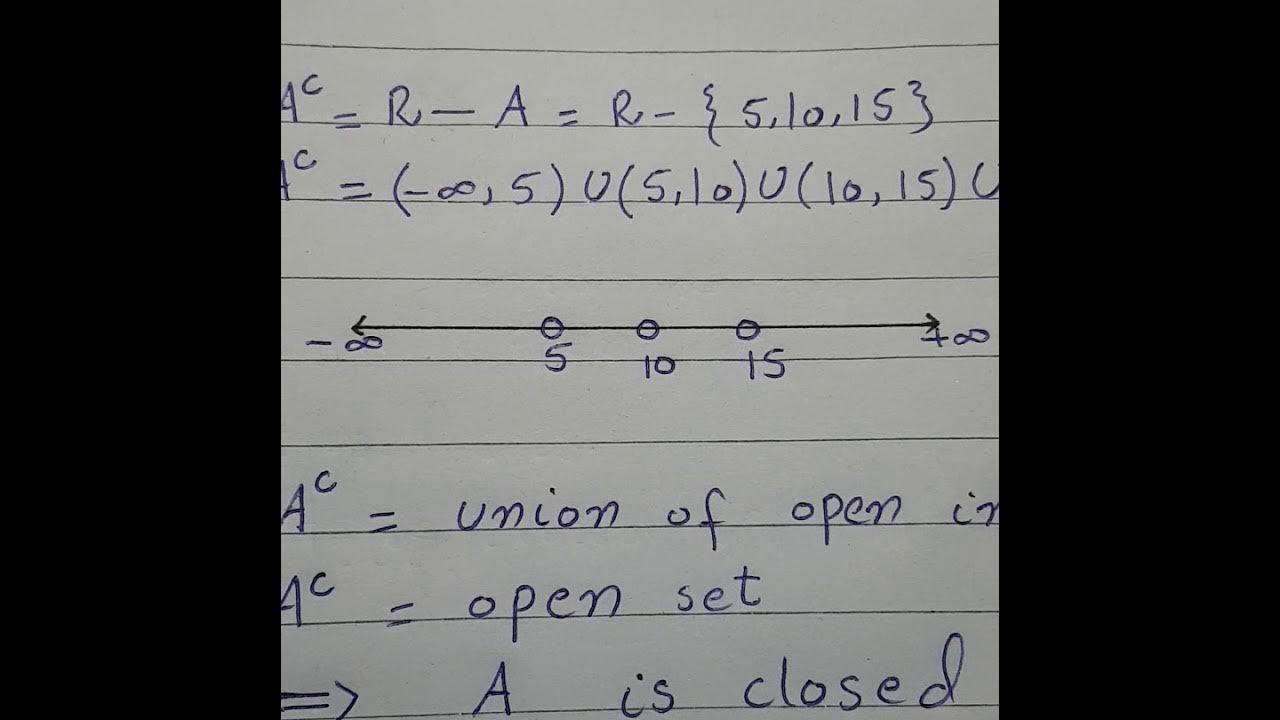 A^c = R - A = R - {5,10,15}
A^c = (-∞, 5) U (5,10) U (10, 15) U
-∞ 5 10 15 +∞
A^c = union of open in
A^c = open set
=> A is closed